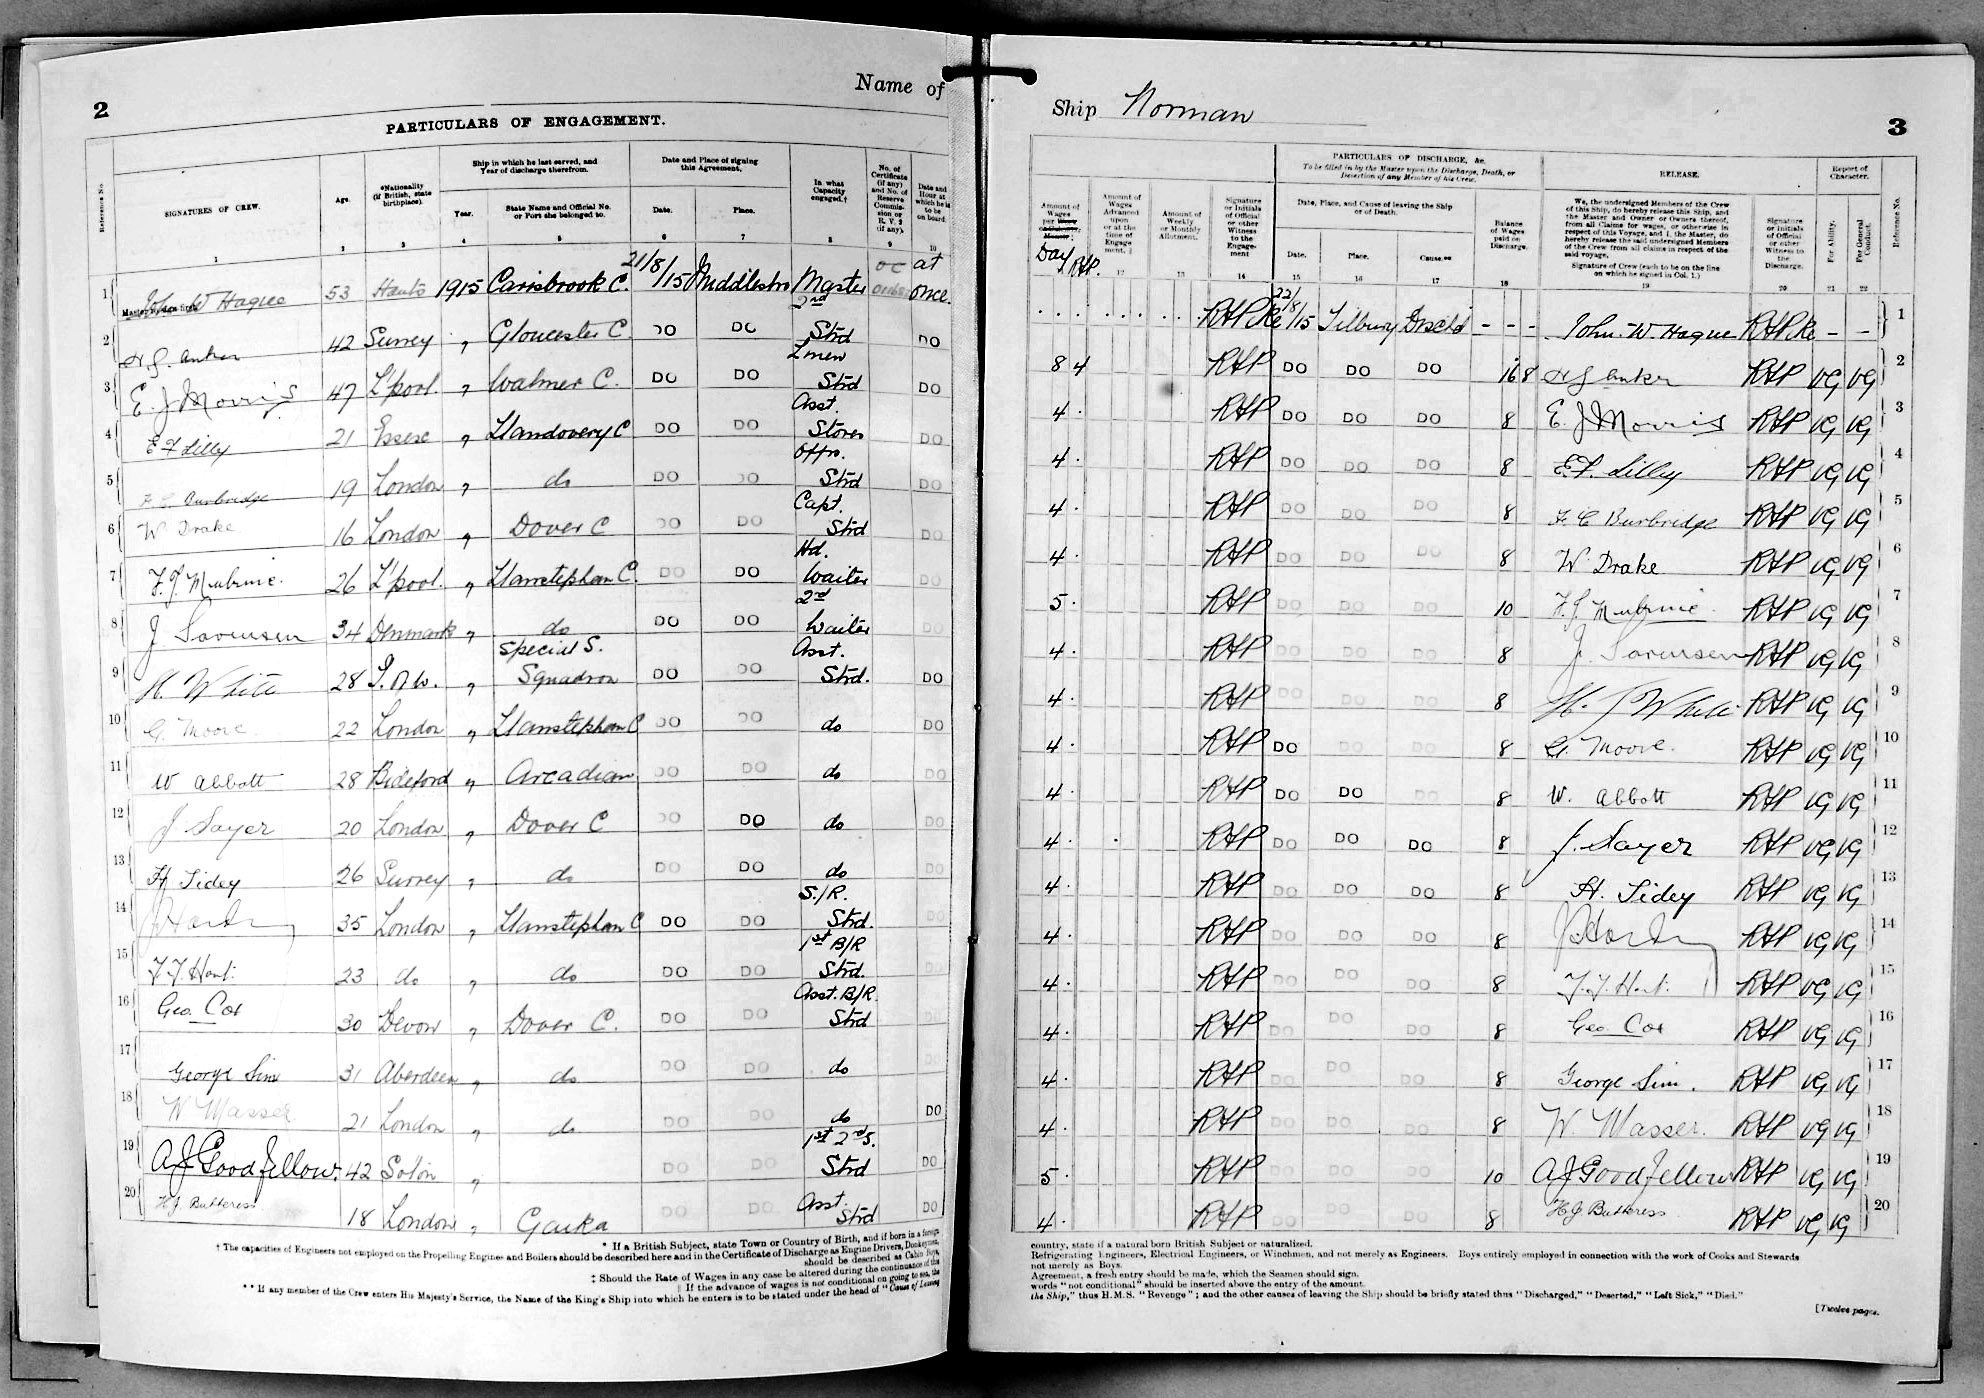 2
Name of
PARTICULARS OF ENGAGEMENT.
Reference No.
SIGNATURES OF CREW.
Age.
*Nationality (if British, state birthplace).
Ship in which he last served, and Year of discharge therefrom.
Year.
State Name and Official No. or Port she belonged to.
Date and Place of signing this Agreement.
Date.
Place.
In what Capacity engaged.†
No. of Certificate (if any) and No. of Reserve Commission or R. V. 2 (if any).
Date and Hour at which he is to be on board.
1 2 3 4 5 6 7 8 9 10
1 John W Hague 53 Hants 1915 Carisbrook C. 21/8/15 Middlesbro Master at once
2 42 Surrey " Gloucester C. DO DO 2nd Strd DO
3 E. J Morris 47 L'pool. " Walmer C. DO DO Linen Strd DO
4 E F Lilly 21 Essex " Llandovery C DO DO Asst. Stores DO
5 F C Burbridge 19 London " do DO DO Offrs. Strd DO
6 W Drake 16 London " Dover C DO DO Capt. Strd DO
7 26 L'pool. " Llanstephan C. DO DO Hd. Waiter DO
8 J Sorensen 34 Denmark " do DO DO 2nd Waiter DO
9 H White 28 " Special S. Squadron DO DO Asst. Strd. DO
10 G. Moore. 22 London " Llanstephan C DO DO do DO
11 W Abbott 28 Bideford " Arcadian DO DO do DO
12 J Sayer 20 London " Dover C DO DO do DO
13 H Tidey 26 Surrey " do DO DO do DO
14 35 London " Llanstephan C DO DO S./R. Strd. DO
15 23 do " do DO DO 1st B/R Strd. DO
16 Geo. Cox 30 Devon " Dover C. DO DO Asst. B/R. Strd DO
17 George Sim 31 Aberdeen " do DO DO do DO
18 W Wasser 21 London " do DO DO do DO
19 A J Goodfellow. 42 Soton " DO DO 1st 2nd S. Strd DO
20 H J Buttress 18 London " Gaika DO DO Asst. Strd DO
* If a British Subject, state Town or Country of Birth, and if born in a foreign
† The capacities of Engineers not employed on the Propelling Engines and Boilers should be described here and in the Certificate of Discharge as Engine Drivers, Donkeymen,
should be described as Cabin Boys,
‡ Should the Rate of Wages in any case be altered during the continuance of this
‖ If the advance of wages is not conditional on going to sea, the
** If any member of the Crew enters His Majesty's Service, the Name of the King's Ship into which he enters is to be stated under the head of "Cause of Leaving
Ship Norman
3
Amount of Wages per
Day
Amount of Wages Advanced upon or at the time of Engagement.‖
Amount of Weekly or Monthly Allotment.
Signature or Initials of Official or other Witness to the Engagement
PARTICULARS OF DISCHARGE, &c.
To be filled in by the Master upon the Discharge, Death, or Desertion of any Member of his Crew.
Date, Place, and Cause of leaving the Ship or of Death.
Date.
Place.
Cause.**
Balance of Wages paid on Discharge.
RELEASE.
We, the undersigned Members of the Crew of this Ship, do hereby release this Ship, and the Master and Owner or Owners thereof, from all Claims for wages, or otherwise in respect of this Voyage, and I, the Master, do hereby release the said undersigned Members of the Crew from all claims in respect of the said voyage.
Signature of Crew (each to be on the line on which he signed in Col. 1.)
Signature or Initials of Official or other Witness to the Discharge.
Report of Character.
For Ability.
For General Conduct.
Reference No.
12 13 14 15 16 17 18 19 20 21 22
22/8/15 Tilbury Dischd - - - John. W. Hague - - 1
8 4 RHP DO DO DO 16 8 RHP VG VG 2
4 . RHP DO DO DO 8 E. J Morris RHP VG VG 3
4 . RHP DO DO DO 8 E F. Lilley RHP VG VG 4
4 . RHP DO DO DO 8 F. C Burbridge RHP VG VG 5
4 . RHP DO DO DO 8 W Drake RHP VG VG 6
5 . RHP DO DO DO 10 RHP VG VG 7
4 . RHP DO DO DO 8 J. Sorensen RHP VG VG 8
4 . RHP DO DO DO 8 White RHP VG VG 9
4 . RHP DO DO DO 8 G. Moore. RHP VG VG 10
4 . RHP DO DO DO 8 W. Abbott RHP VG VG 11
4 . RHP DO DO DO 8 J. Sayer RHP VG VG 12
4 . RHP DO DO DO 8 H. Tidey RHP VG VG 13
4 . RHP DO DO DO 8 RHP VG VG 14
4 . RHP DO DO DO 8 RHP VG VG 15
4 . RHP DO DO DO 8 Geo. Cox RHP VG VG 16
4 . RHP DO DO DO 8 George Sim. RHP VG VG 17
4 . RHP DO DO DO 8 W Wasser. RHP VG VG 18
5 . RHP DO DO DO 10 A J Goodfellow RHP VG VG 19
4 . RHP DO DO DO 8 H J Buttress RHP VG VG 20
country, state if a natural born British Subject or naturalized.
Refrigerating Engineers, Electrical Engineers, or Winchmen, and not merely as Engineers. Boys entirely employed in connection with the work of Cooks and Stewards
not merely as Boys.
Agreement, a fresh entry should be made, which the Seamen should sign.
words "not conditional" should be inserted above the entry of the amount.
the Ship," thus H.M.S. "Revenge"; and the other causes of leaving the Ship should be briefly stated thus "Discharged," "Deserted," "Left Sick," "Died."
[Twelve pages.